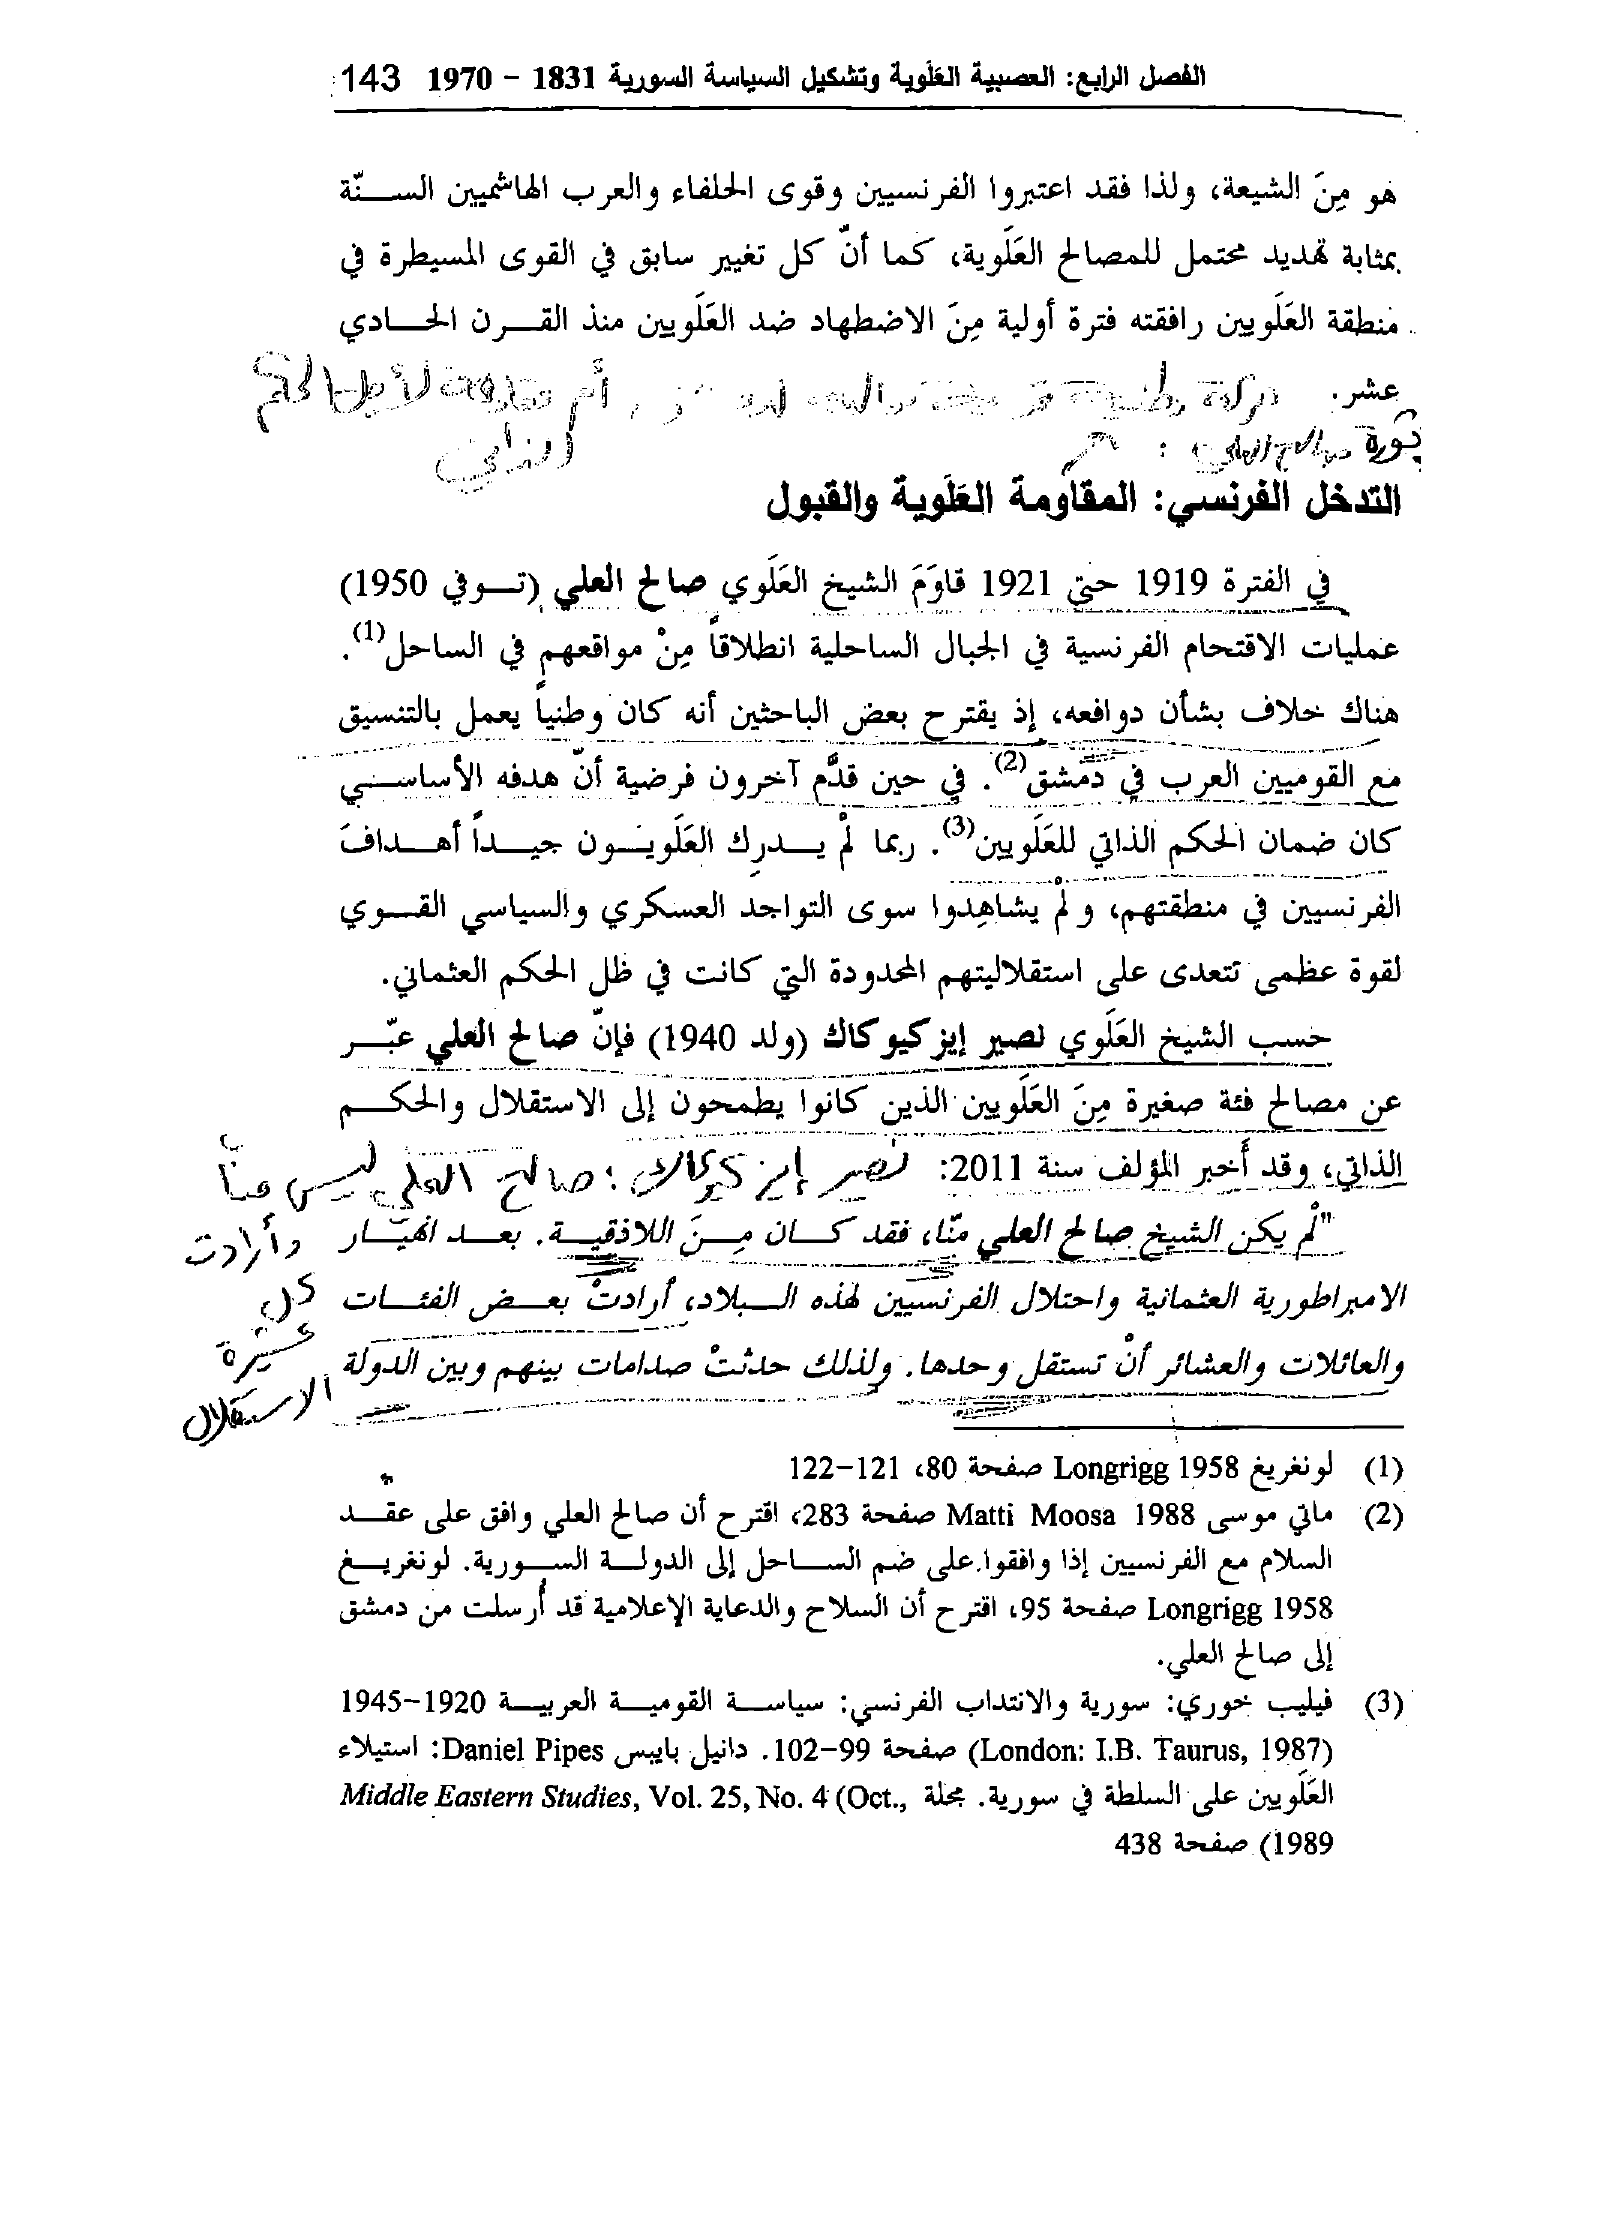 الفصل الرابع: العصبية العَلَوية وتشكيل السياسة السورية 1831 - 1970 143
هو مِنَ الشيعة، ولذا فقد اعتبروا الفرنسيين وقوى الحلفاء والعرب الهاشميين السـنّة
بمثابة تهديد محتمل للمصالح العَلَوية، كما أنّ كل تغيير سابق في القوى المسيطرة في
منطقة العَلَويين رافقته فترة أولية مِنَ الاضطهاد ضد العَلَويين منذ القـرن الحـادي
عشر. حركة وطنية أم مقاومة لأجل الحكم
ثورة صالح العلي : الذاتي
التدخل الفرنسي: المقاومة العَلَوية والقبول
في الفترة 1919 حتى 1921 قاوَمَ الشيخ العَلَوي صالح العلي (تـوفي 1950)
عمليات الاقتحام الفرنسية في الجبال الساحلية انطلاقاً مِنْ مواقعهم في الساحل(1).
هناك خلاف بشأن دوافعه، إذ يقترح بعض الباحثين أنه كان وطنياً يعمل بالتنسيق
مع القوميين العرب في دمشق(2). في حين قدَّم آخرون فرضية أنّ هدفه الأساسـي
كان ضمان الحكم الذاتي للعَلَويين(3). ربما لمْ يـدرك العَلَويـون جيـداً أهـدافَ
الفرنسيين في منطقتهم، ولمْ يشاهِدوا سوى التواجد العسكري والسياسي القـوي
لقوة عظمى تتعدى على استقلاليتهم المحدودة التي كانت في ظل الحكم العثماني.
حسب الشيخ العَلَوي نصير إيز كيوكاك (ولد 1940) فإنّ صالح العلي عبّـر
عن مصالح فئة صغيرة مِنَ العَلَويين الذين كانوا يطمحون إلى الاستقلال والحكـم
الذاتي، وقد أَخبر المؤلف سنة 2011: نصير إيز كيوكاك : صالح العلي ليس منّا
"لمْ يكن الشيخ صالح العلي منّا، فقد كـان مِـنَ اللاذقيـة. بعـد انهيّـار وأرادت
الامبراطورية العثمانية واحتلال الفرنسيين لهذه الـبلاد، أرادتْ بعـض الفئـات كل
والعائلات والعشائر أنْ تستقل وحدها. ولذلك حدثتْ صدامات بينهم وبين الدولة عشيرة
الاستقلال
(1) لونغريغ Longrigg 1958 صفحة 80، 121-122
(2) ماتي موسى Matti Moosa 1988 صفحة 283، اقترح أن صالح العلي وافق على عقـد
السلام مع الفرنسيين إذا وافقوا على ضم السـاحل إلى الدولـة السـورية. لونغريـغ
Longrigg 1958 صفحة 95، اقترح أن السلاح والدعاية الإعلامية قد أُرسلت من دمشق
إلى صالح العلي.
(3) فيليب خوري: سورية والانتداب الفرنسي: سياسـة القوميـة العربيـة 1920-1945
(London: I.B. Taurus, 1987) صفحة 99-102. دانيل بايبس Daniel Pipes: استيلاء
العَلَويين على السلطة في سورية. مجلة Middle Eastern Studies, Vol. 25, No. 4 (Oct.,
1989) صفحة 438